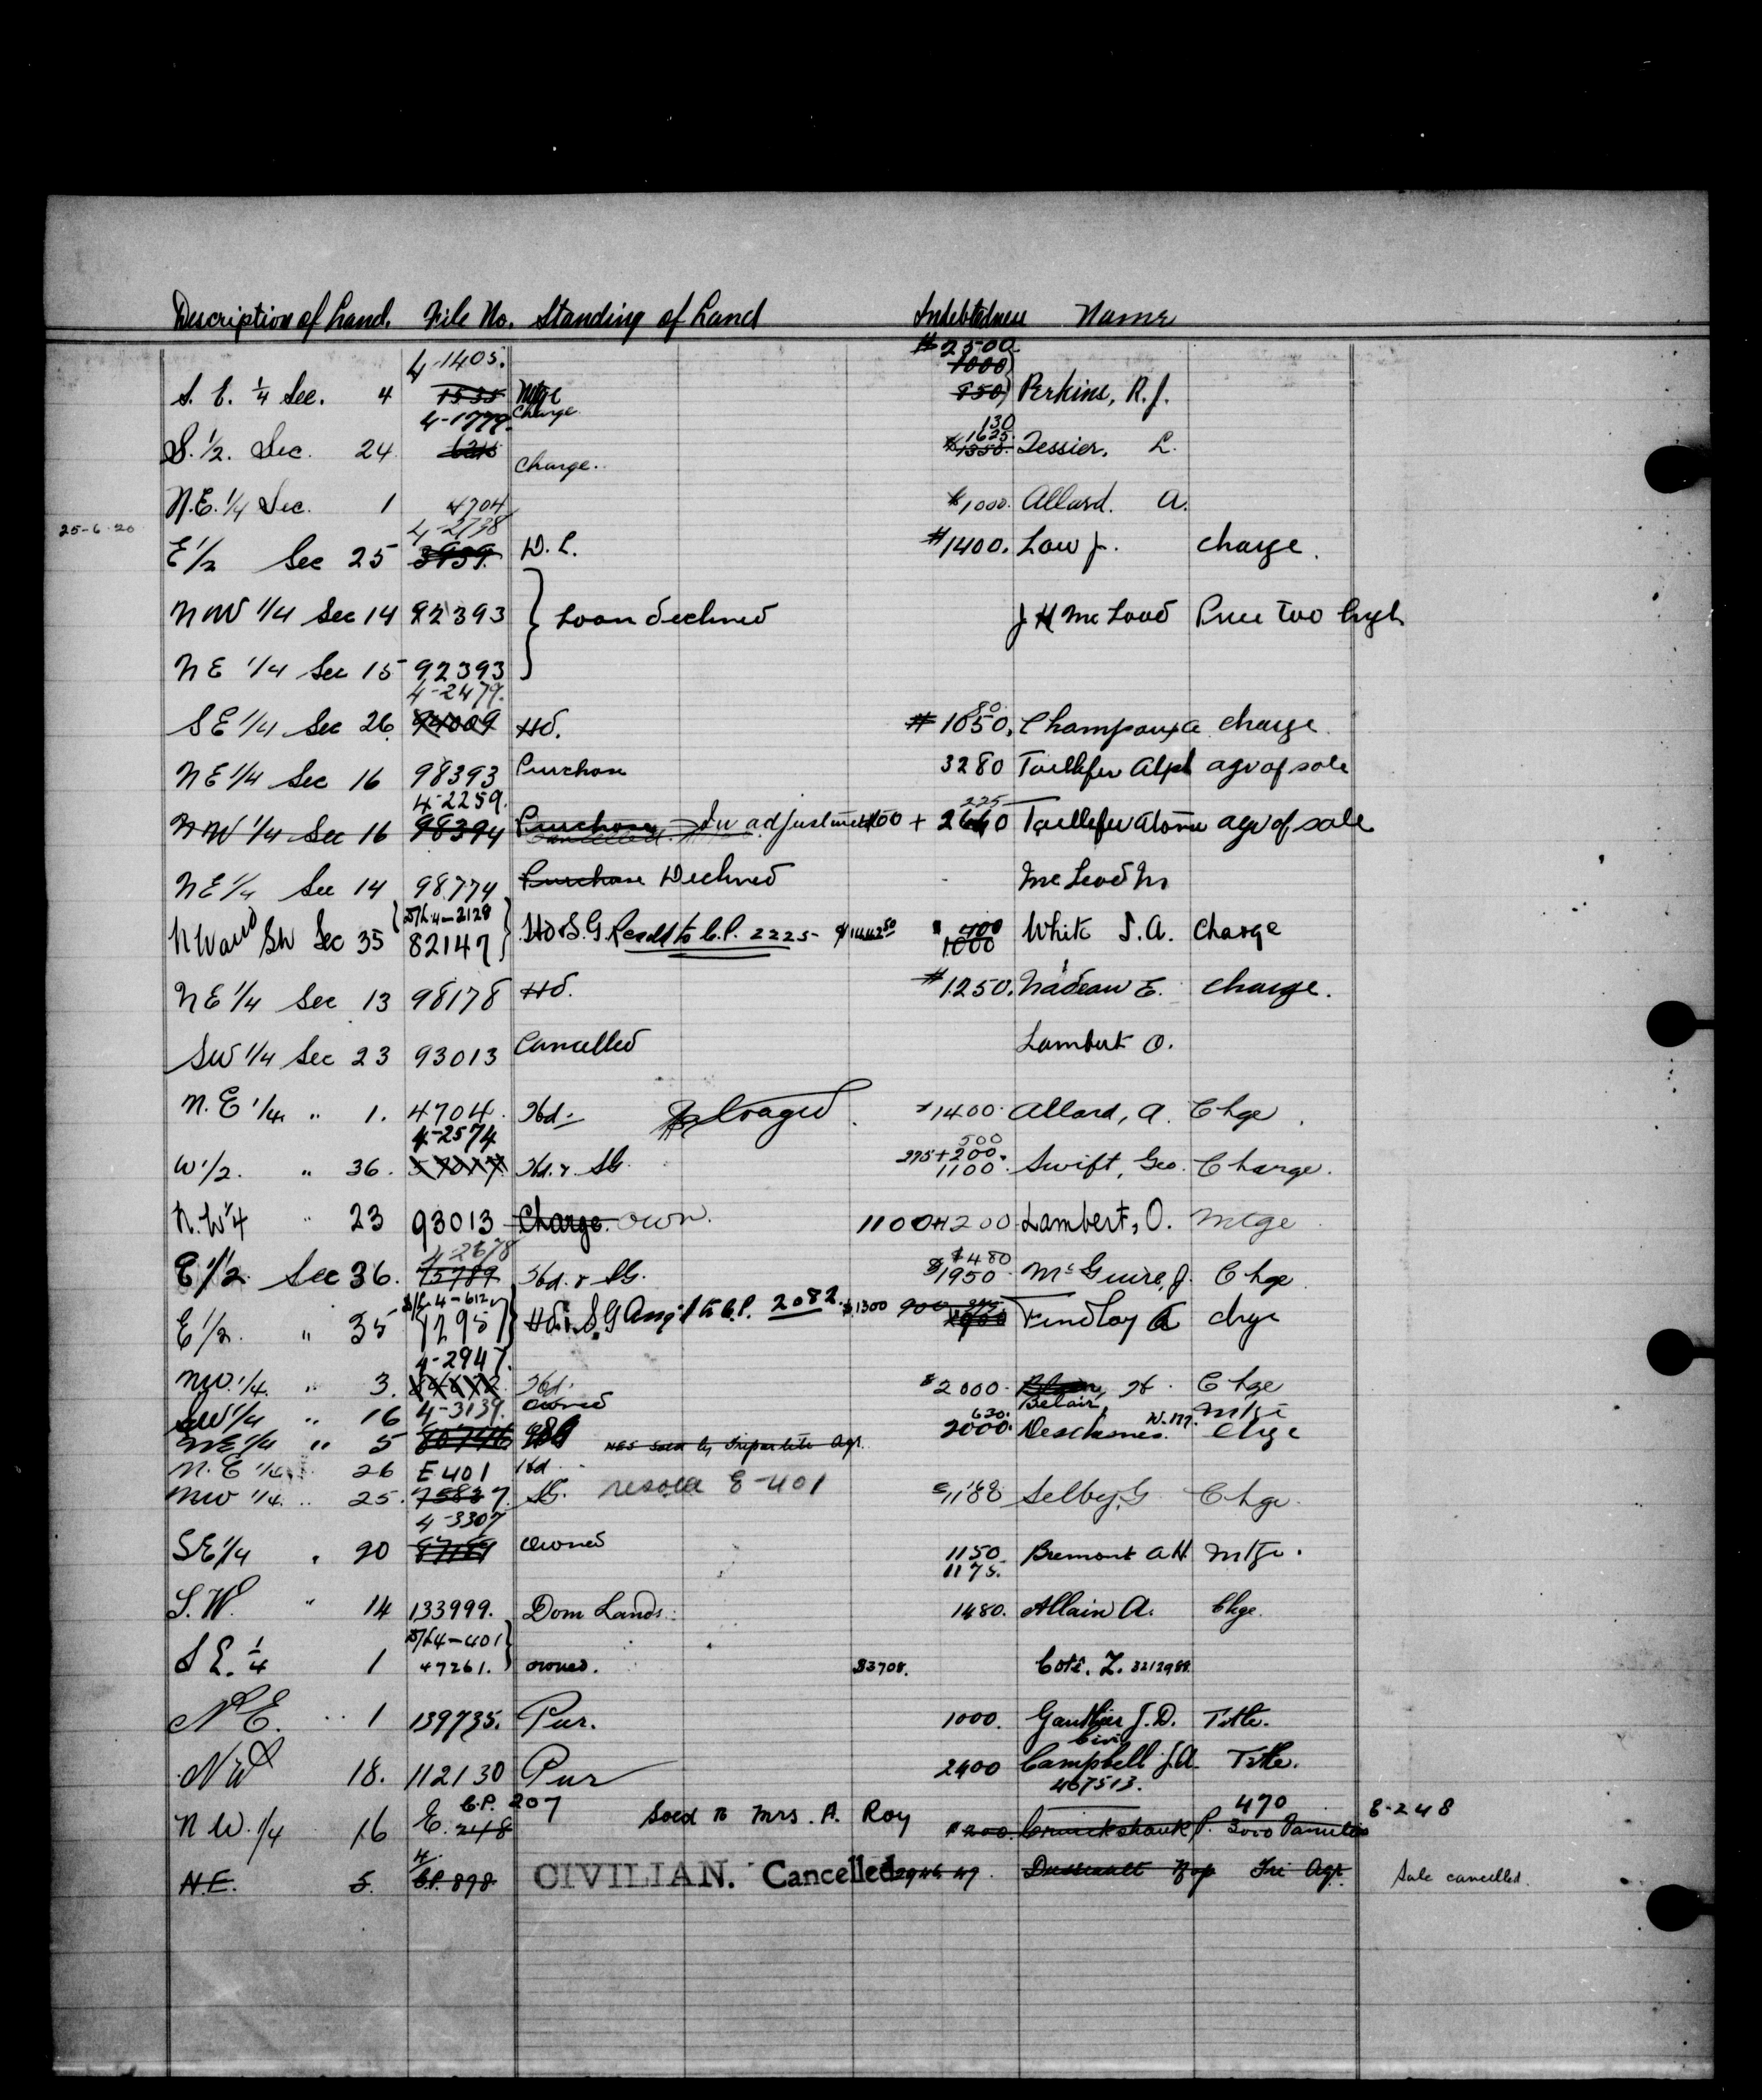 Description of Land. File No. Standing of Land Indebtedness Name
4-1405. $2500
1000
S. E. 1/4 Sec. 4 1535 Mtge 850 Perkins, R. J.
4-1779. Charge. 130
1625.
S. 1/2. Sec. 24 Charge. $1350. Tessier, L.
N.E. 1/4 Sec. 1 4704 $1000. Allard. A.
25-6-20 4-2738
E 1/2 Sec 25 3939. D. L. $1400. Low J. Charge.
NW 1/4 Sec 14 92393 Loan declined J H McLeod Price too high
NE 1/4 Sec 15 92393
4-2479. 80
SE 1/4 Sec 26 94009 Hd. $1050. Champoux a charge
NE 1/4 Sec 16 98393 Purchase 3280 Taillefer Alph agr of sale
4-2259. 225
NW 1/4 Sec 16 98394 Purchase In adjustment + Taillefer agr of sale
Cancelled
NE 1/4 Sec 14 98774 Purchase Declined McLeod M
S/L 4-2128
NW and SW Sec 35 82147 Hd & S.G. Resold to C.P. 2225 $1442.50 $ 400 White S. A. Charge
1000
NE 1/4 Sec 13 98178 Hd. $1250. Nadeau E. charge.
SW 1/4 Sec 23 93013 Cancelled Lambert O.
N. E 1/4 " 1. 4704. Hbd. $1400. Allard, A. Chge.
4-2574 500
275+200.
W 1/2. " 36. Hd. & SG. 1100. Swift, Geo. Charge.
N.W 1/4 " 23 93013 Charge. own. 1100+1200 Lambert, O. Mtge
4-2678 $480
E 1/2. Sec 36. 75789 Hbd. & SG. $1950 McGuire, J. Chge.
S/L 4-612
E 1/2. " 35 71295 Hd. & S.G Ass'd to C.P. 2082. $1300 900 Findlay A chge
4-2947.
NW. 1/4. " 3. Hbd. $2000. H. Chge
Belair,
SW 1/4 " 16 4-3139. owned 630. Mtge
NE 1/4 " 5 NE5 Sold by Tripartite Agr. 2000. Deschesnes. N. M. Chge
N. E 1/4 " 26 E 401 Hbd
NW 1/4. " 25. 75837. SG. resold E-401 $1188 Selby, G Chge.
4-3307
SE 1/4 " 20 87189 owned 1150 Bremont A H Mtge.
1175.
S. W. " 14 133999. Dom Lands. 1480. Allain A. Chge.
S/L 4-401
S E. 1/4 1 47261. owned. $3708. Coté. Z. 3212989.
N E. " 1 139735. Pur. 1000. Gauthier J. D. Title.
Civil
NW 18. 112130 Pur 2400 Campbell J. A. Title.
467513.
C.P. 207 470 E-248
N W. 1/4 16 E. 248 Sold to Mrs. A. Roy $200. Cruickshank P. 3000
4
N.E. 5. C.P. 898 CIVILIAN. Cancelled Dussault Tri Agr. Sale cancelled.